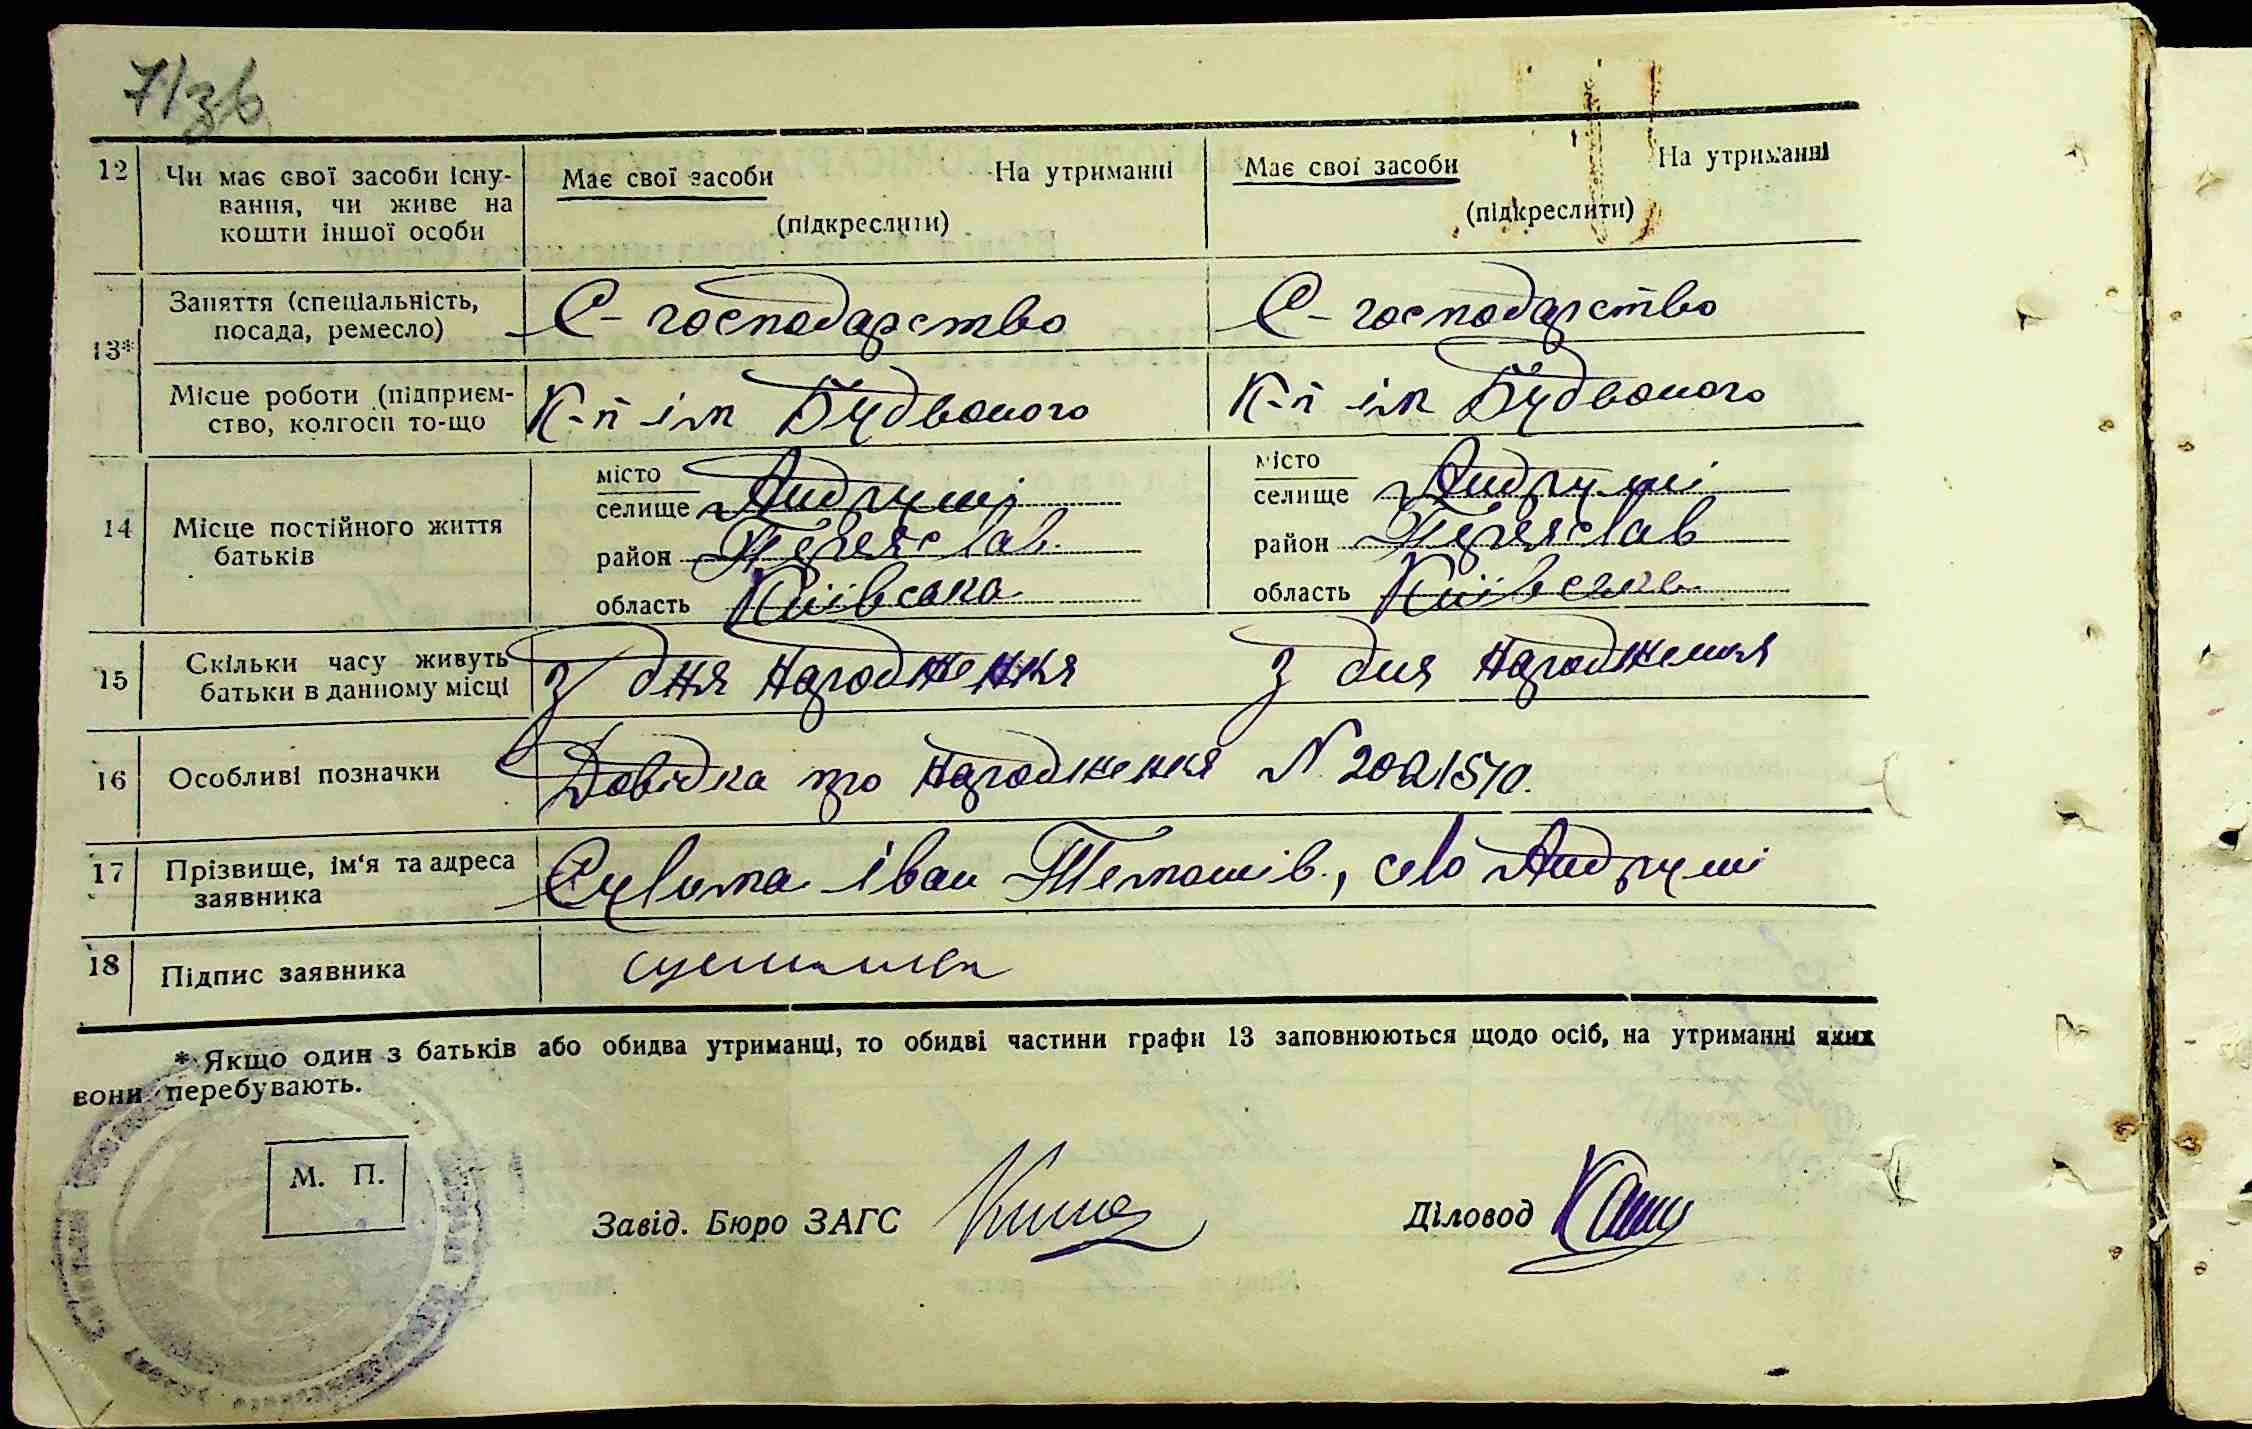 7/зв
12 Чи має свої засоби існу- Має свої засоби На утриманні Має свої засоби На утриманні
вання, чи живе на (підкреслити) (підкреслити)
кошти іншої особи
13* Заняття (спеціальність, С-господарство С-господарство
посада, ремесло)
Місце роботи (підприєм- К-п ім Будьоного К-п ім Будьоного
ство, колгосп то-що
14 Місце постійного життя місто місто
батьків селище Андруші селище Андруші
район Переяслав район Переяслав
область Київська область Київська
15 Скільки часу живуть З дня народження З дня народження
батьки в данному місці
16 Особливі позначки Довідка про народження N 2021570.
17 Прізвище, ім'я та адреса Сулима Іван, село Андруші
заявника
18 Підпис заявника
* Якщо один з батьків або обидва утриманці, то обидві частини графи 13 заповнюються щодо осіб, на утриманні яких
вони перебувають.
М. П.
Завід. Бюро ЗАГС Діловод